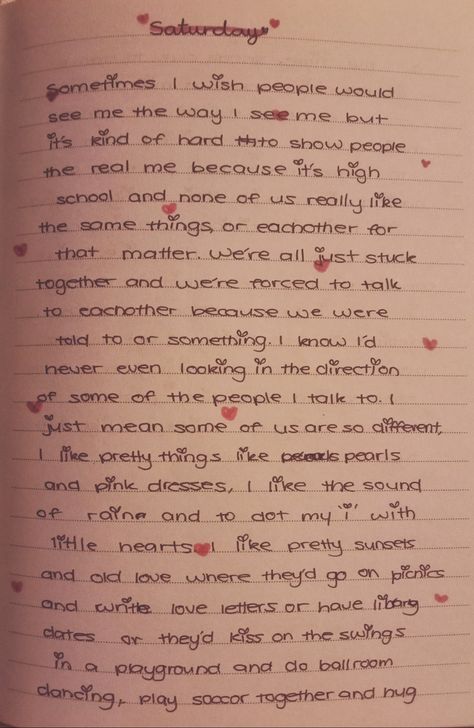 Saturday
Sometimes I wish people would
see me the way I see me but
it's kind of hard to show people
the real me because it's high
school and none of us really like
the same things, or eachother for
that matter. We're all just stuck
together and we're forced to talk
to eachother because we were
told to or something. I know I'd
never even looking in the direction
of some of the people I talk to. I
just mean some of us are so different,
I like pretty things like pearls
and pink dresses, I like the sound
of raine and to dot my 'i' with
little hearts. I like pretty sunsets
and old love where they'd go on picnics
and write love letters or have
dates or they'd kiss on the swings
in a playground and do ballroom
dancing, play soccor together and hug